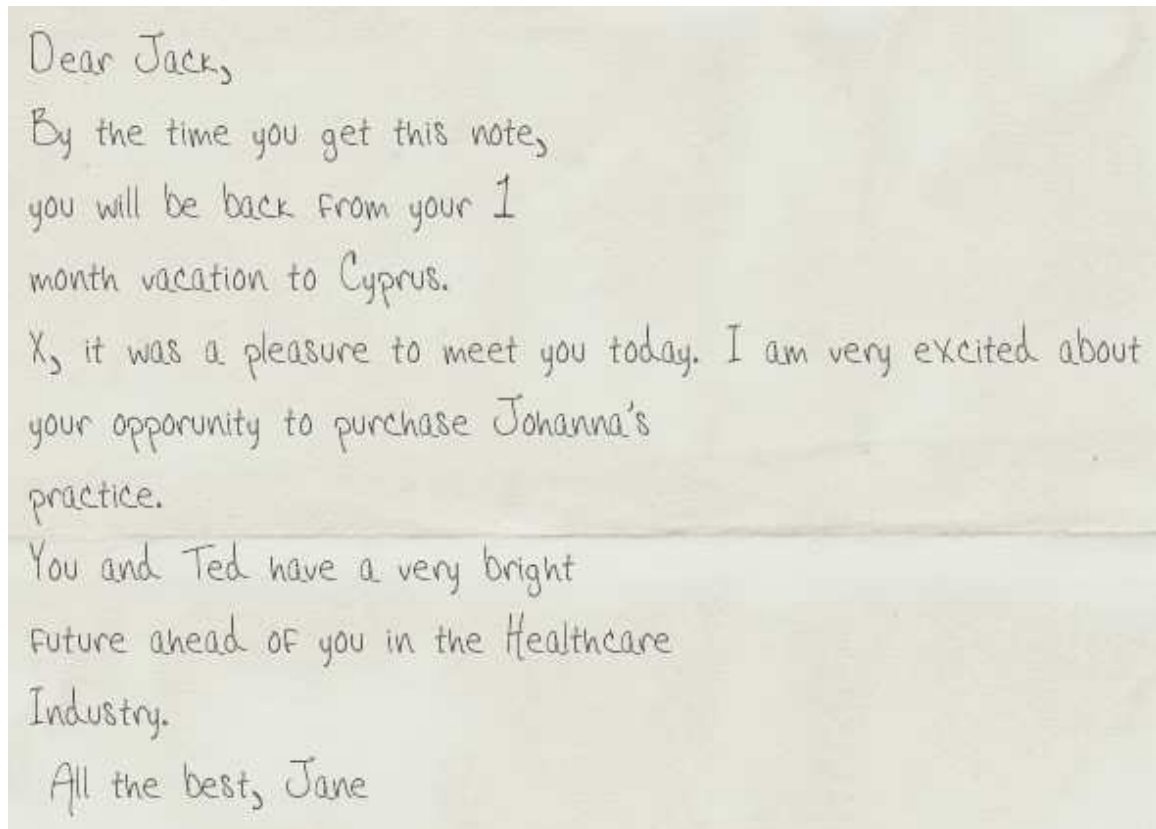 Dear Jack,
By the time you get this note,
you will be back from your 1
month vacation to Cyprus.
X, it was a pleasure to meet you today. I am very excited about
your opporunity to purchase Johanna's
practice.
You and Ted have a very bright
future ahead of you in the Healthcare
Industry.
All the best, Jane